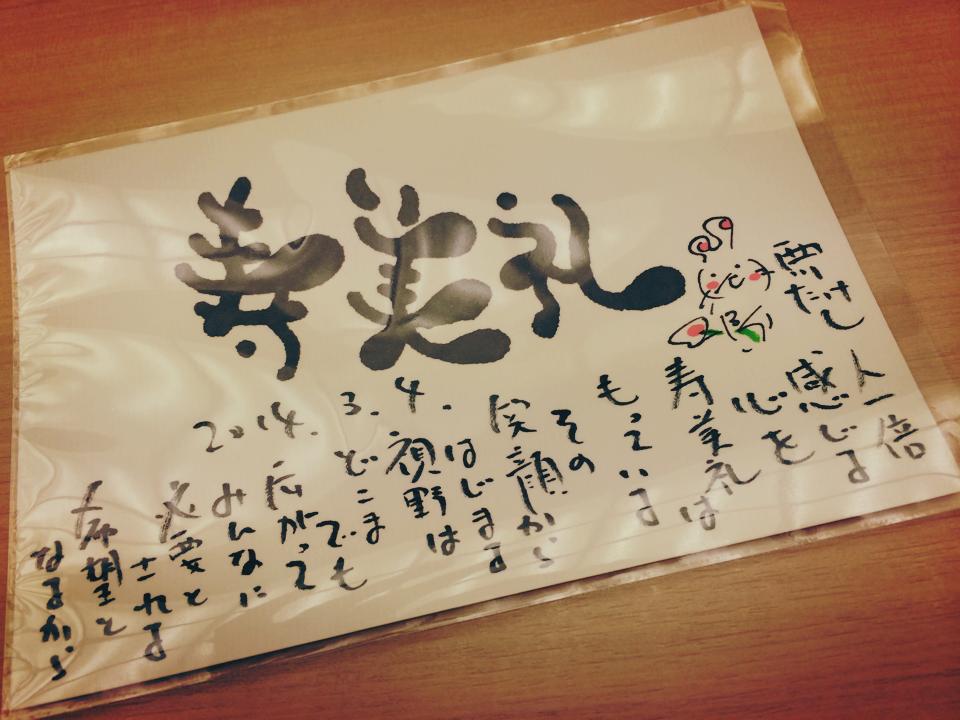 寿美礼
人一倍
感じる
心を
寿美礼は
もっている
その
笑顔から
はじまる
視野は
どこまでも
広がって
みんなに
必要と
される
希望と
なるから
2014.3.4.
たけし